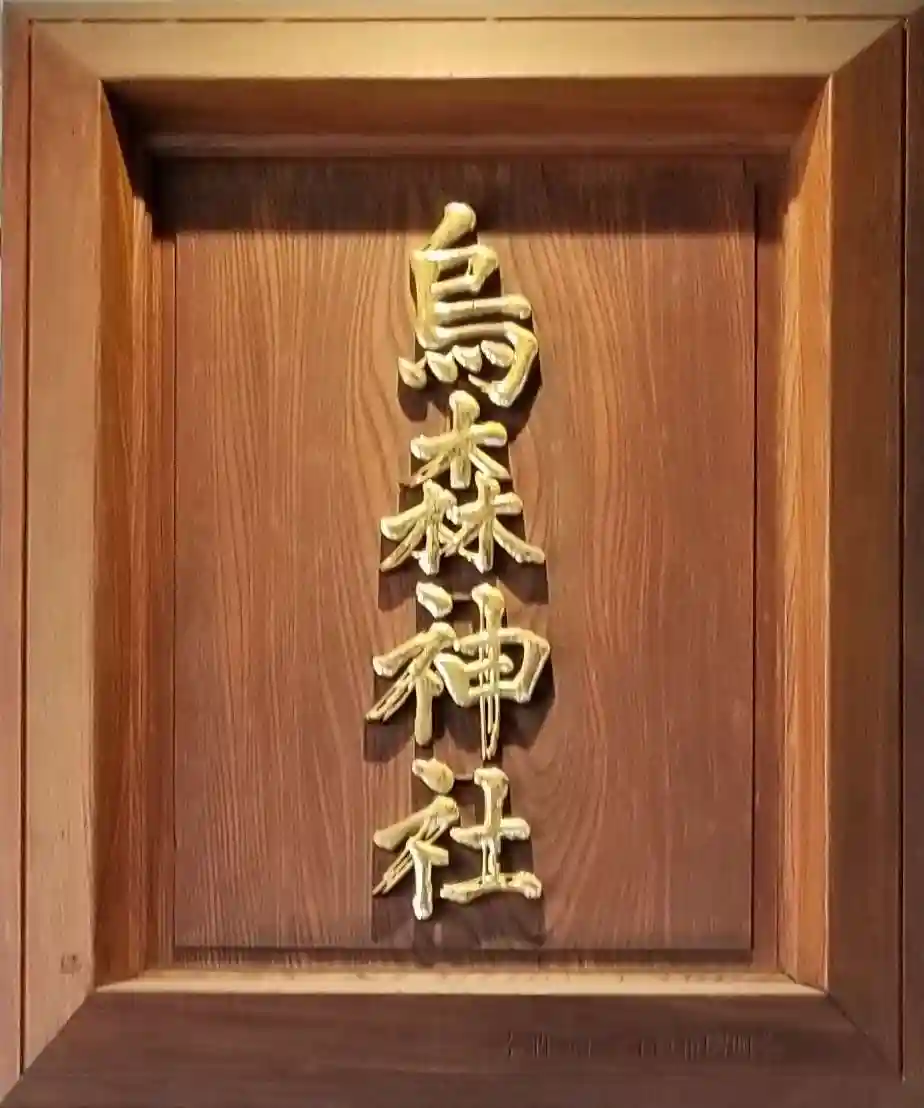 烏森神社